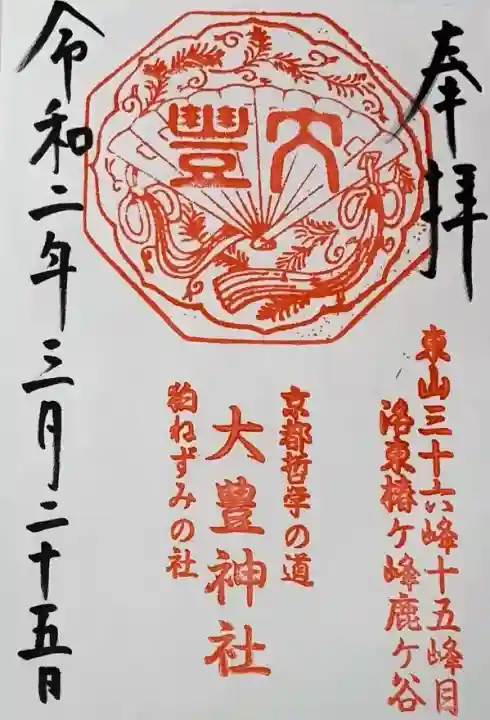 奉拝
大豐
東山三十六峰十五峰目
洛東椿ケ峰鹿ケ谷
京都哲学の道
大豊神社
狛ねずみの社
令和二年三月二十五日